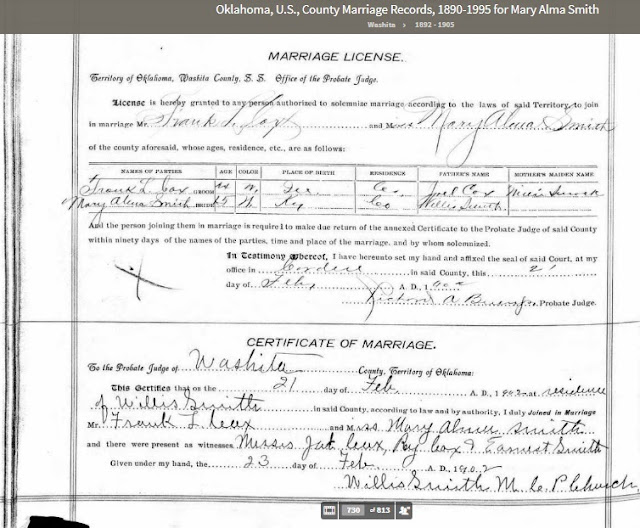 Oklahoma, U.S., County Marriage Records, 1890-1995 for Mary Alma Smith
Washita › 1892 - 1905
MARRIAGE LICENSE.
Territory of Oklahoma, Washita County, S. S. Office of the Probate Judge.
License is hereby granted to any person authorized to solemnize marriage according to the laws of said Territory, to join
in marriage Mr. Frank L. Cox and Miss Mary Alma Smith
of the county aforesaid, whose ages, residence, etc., are as follows:
NAMES OF PARTIES AGE COLOR PLACE OF BIRTH RESIDENCE FATHER'S NAME MOTHER'S MAIDEN NAME
Frank L. Cox GROOM W. Co. Cox
Mary Alma Smith BRIDE W. Ky Co Willis Smith
And the person joining them in marriage is required to make due return of the annexed Certificate to the Probate Judge of said County
within ninety days of the names of the parties, time and place of the marriage, and by whom solemnized.
In Testimony Whereof, I have hereunto set my hand and affixed the seal of said Court, at my
office in Cordell in said County, this 21
day of Feby A. D., 1902
Probate Judge.
CERTIFICATE OF MARRIAGE.
To the Probate Judge of Washita County, Territory of Oklahoma:
This Certifies that on the 21 day of Feb A. D., 1902 at residence
of Willis Smith in said County, according to law and by authority, I duly Joined in Marriage
Mr. Frank L. Cox and Miss Mary Alma Smith
and there were present as witnesses Messrs Cox, Cox & Earnest Smith
Given under my hand, the 23 day of Feb. A. D., 1902
Willis Smith M. C. P. Church
730 of 813